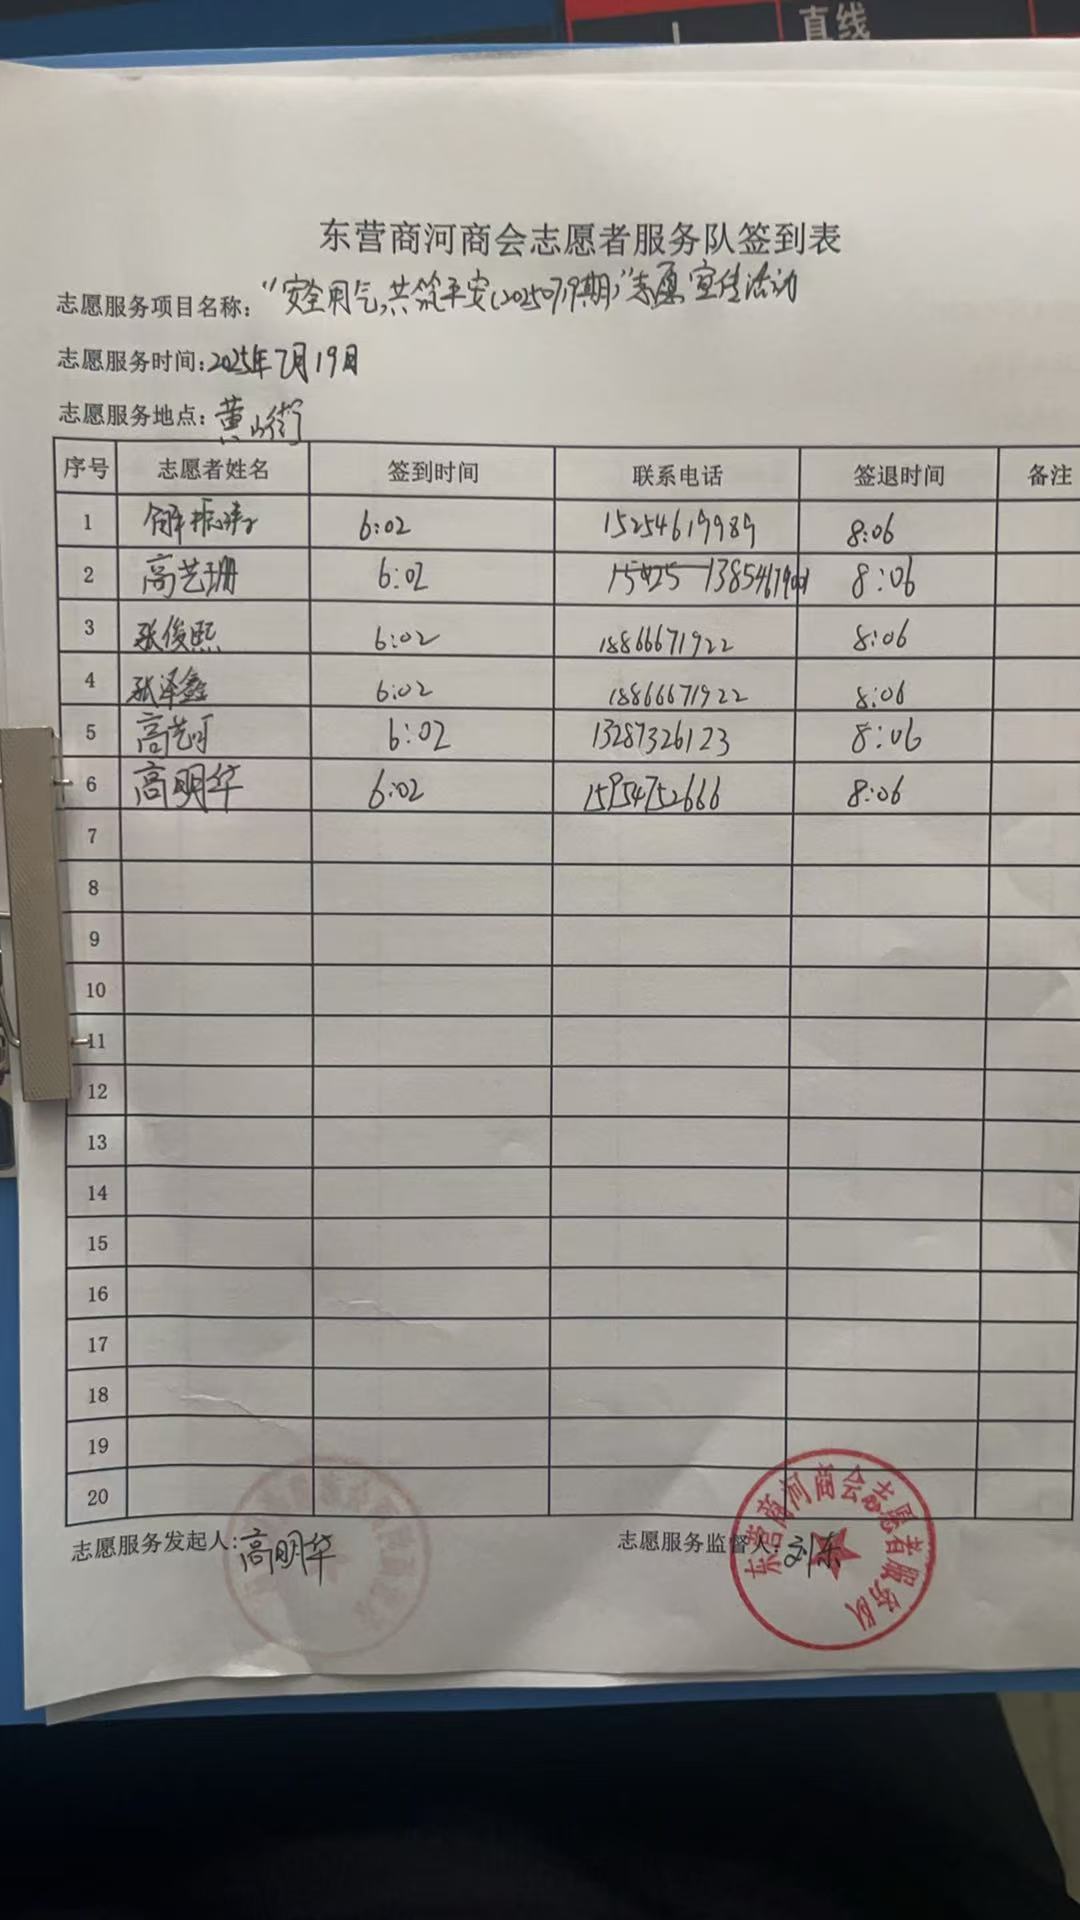 直线
东营商河商会志愿者服务队签到表
志愿服务项目名称：“安全用气，共筑平安（20250719期）”志愿宣传活动
志愿服务时间：2025年7月19日
志愿服务地点：黄山街
序号 志愿者姓名 签到时间 联系电话 签退时间 备注
1 6:02 15254619989 8:06
2 高艺珊 6:02 8:06
3 张俊熙 6:02 18866671922 8:06
4 张泽鑫 6:02 18866671922 8:06
5 高艺可 6:02 13287326123 8:06
6 高明华 6:02 15954752666 8:06
7
8
9
10
11
12
13
14
15
16
17
18
19
20
志愿服务发起人：高明华 志愿服务监督人：刘东
东营商河商会志愿者服务队